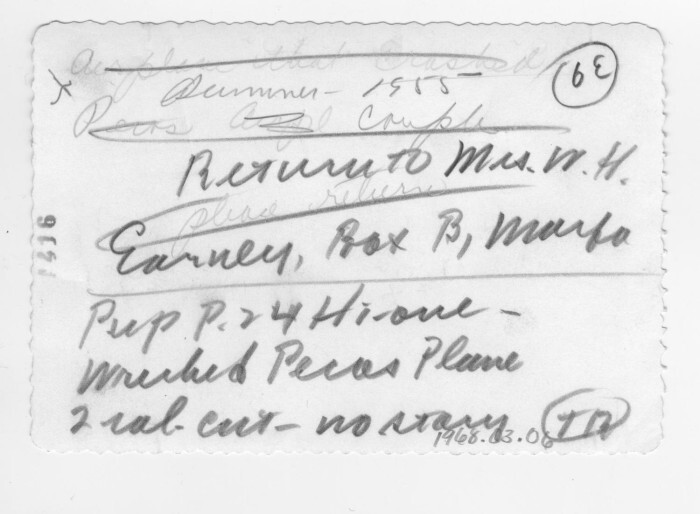 Airplane that Crashed
Summer - 1955
Pecos couple
Return to Mrs. W. H.
please return
Earney, Box B, Marfa
Pup P. 24 Hi-one -
Wrecked Pecos Plane
2 col. cut - no story
1968.03.08
39
1216